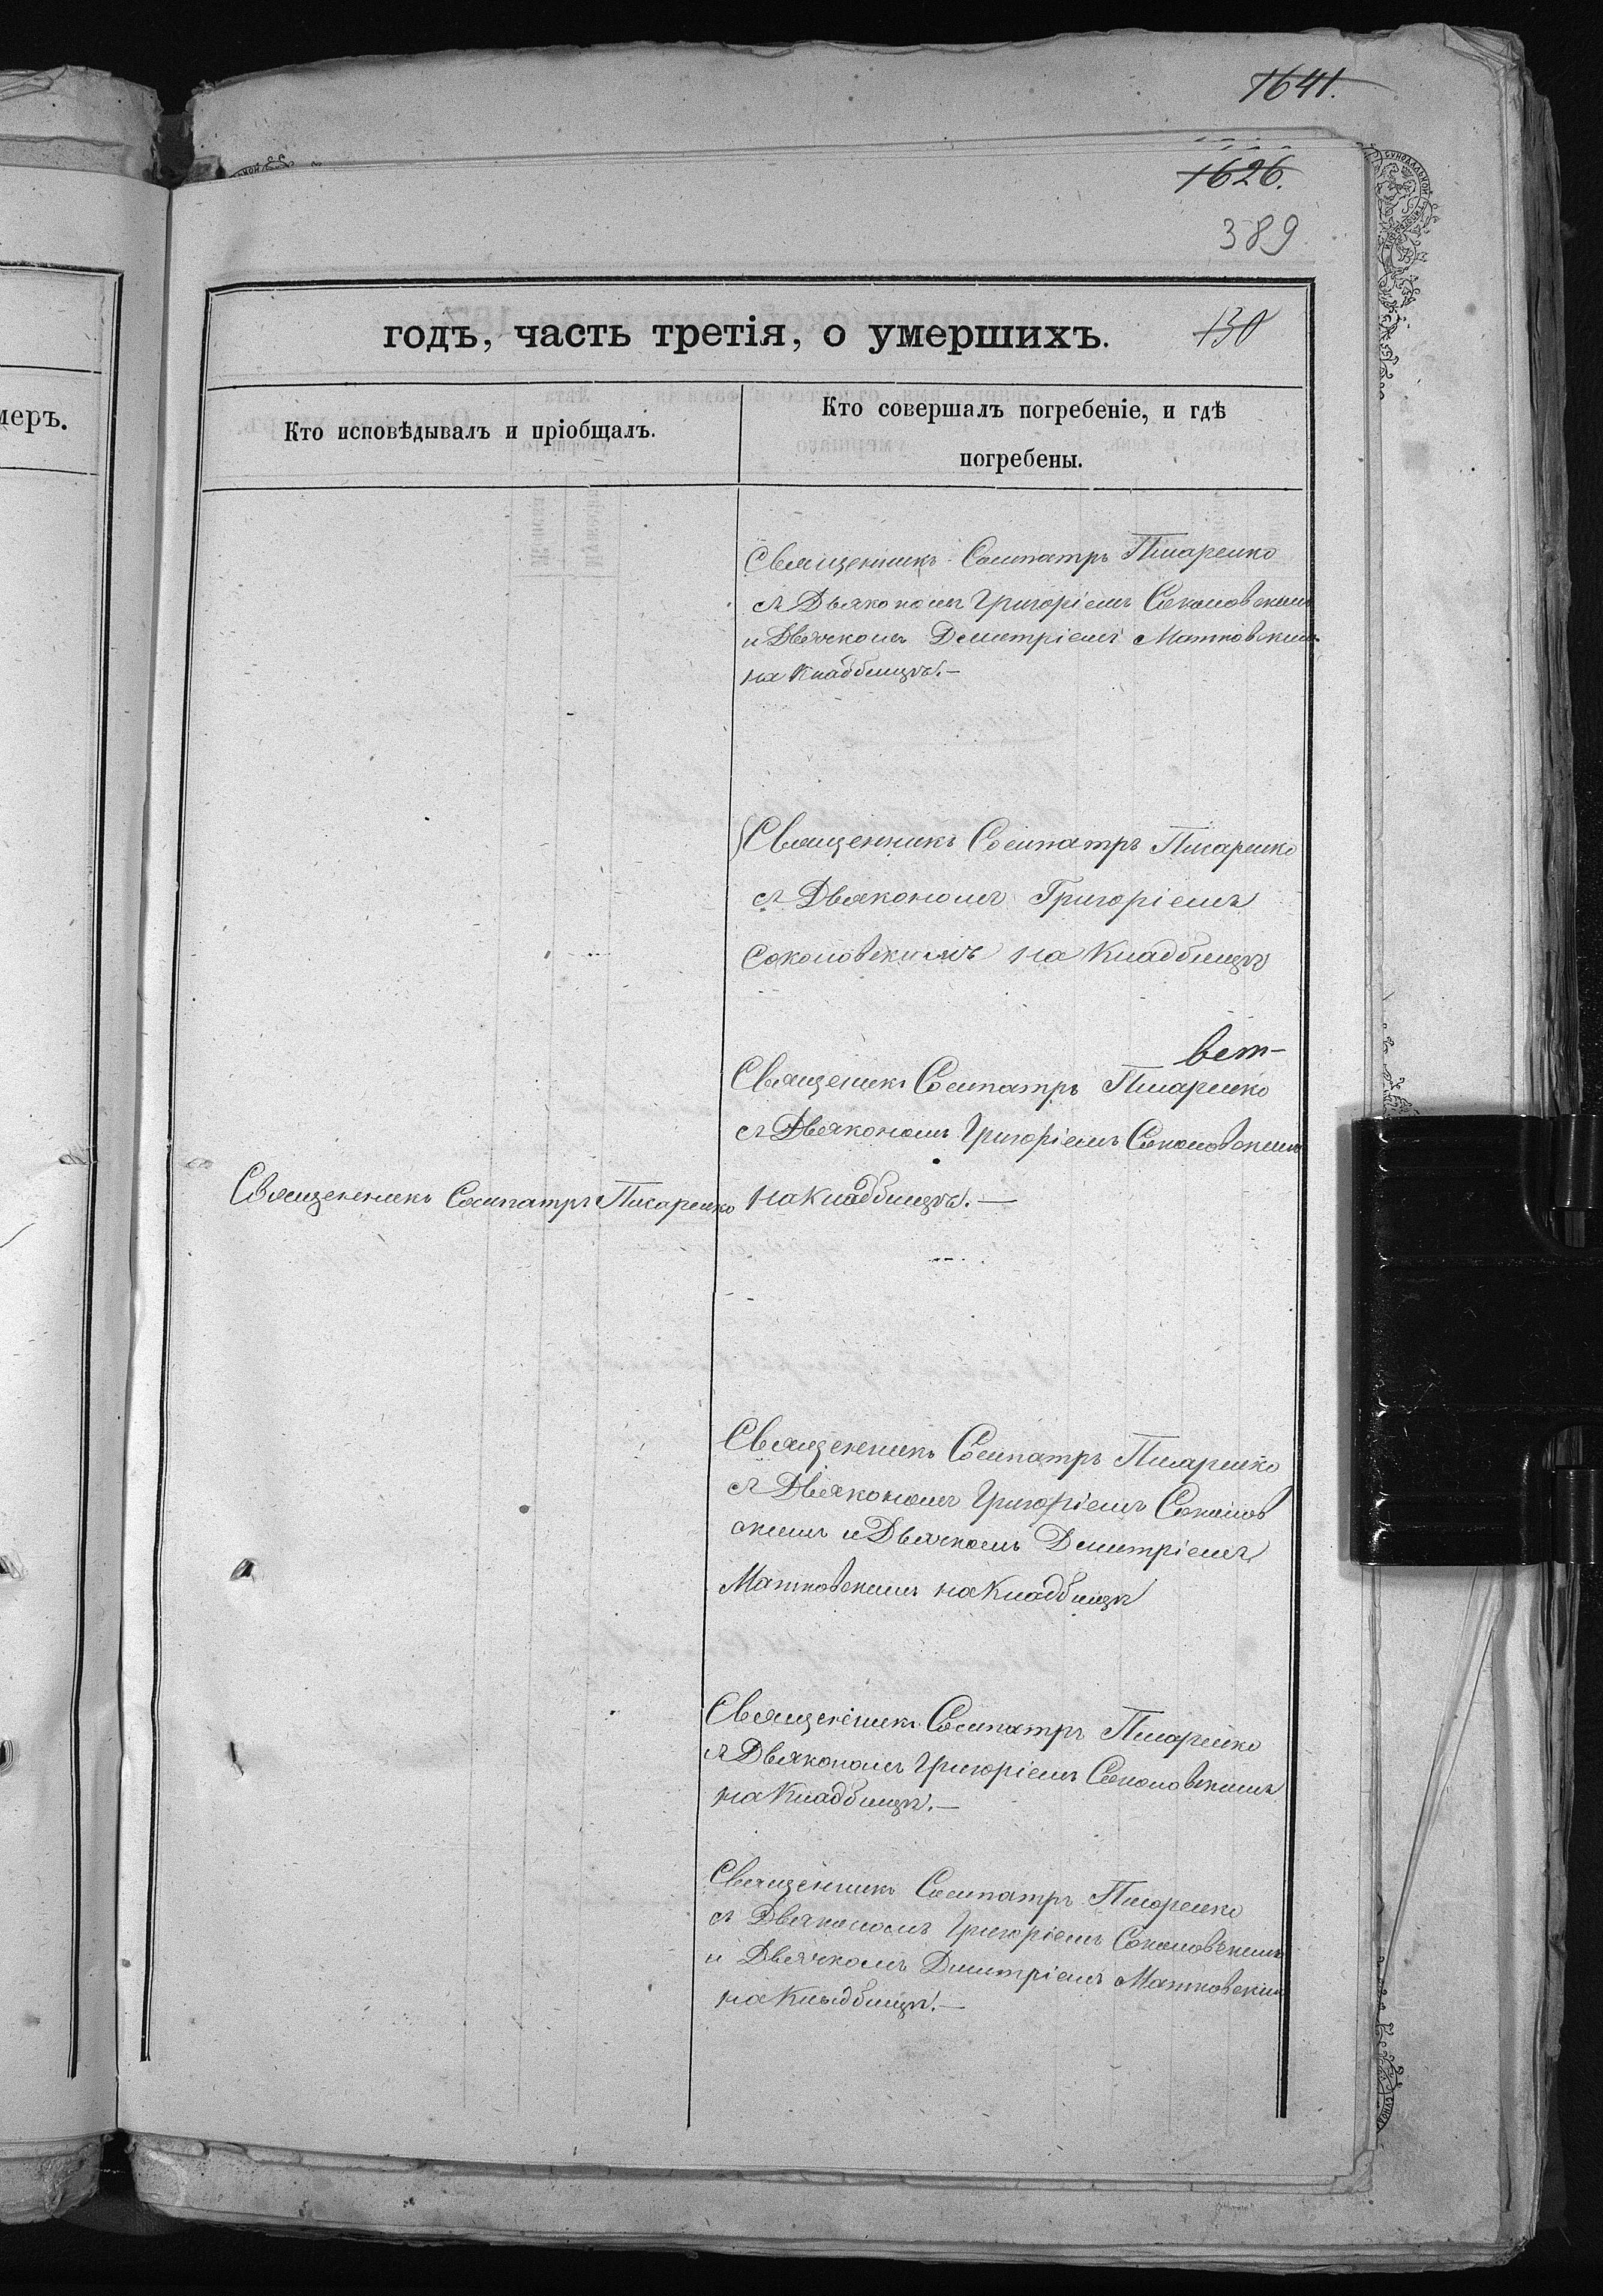 1641.
1626.
389
годъ, часть третія, о умершихъ.
130
меръ.
Кто исповѣдывалъ и пріобщалъ.
Кто совершалъ погребеніе, и гдѣ
погребены.
Священникъ Сосипатръ Писаренко
съ Дьякономъ Григоріемъ Соколовскимъ
и Дьячкомъ Деметріемъ Матковскимъ
на Кладбищѣ.—
Священникъ Сосипатръ Писаренко
съ Дьякономъ Григоріемъ
Соколовскимъ на Кладбищѣ
вет-
Священикъ Сосипатръ Писаренко
съ Дьякономъ Григоріемъ Соколовскимъ
Священникъ Сосипатръ Писаренко
на Кладбищѣ.—
Священникъ Сосипатръ Писаренко
съ Дьякономъ Григоріемъ Соколов
скимъ и Дьячкомъ Димитріемъ
Матковскимъ на Кладбищѣ
Священникъ Сосипатръ Писаренко
съ Дьякономъ Григоріемъ Соколовскимъ
на Кладбищѣ.—
Священникъ Сосипатръ Писаренко
съ Дьякономъ Григоріемъ Соколовскимъ
и Дьячкомъ Димитріемъ Матковским
на Кладбищѣ.—